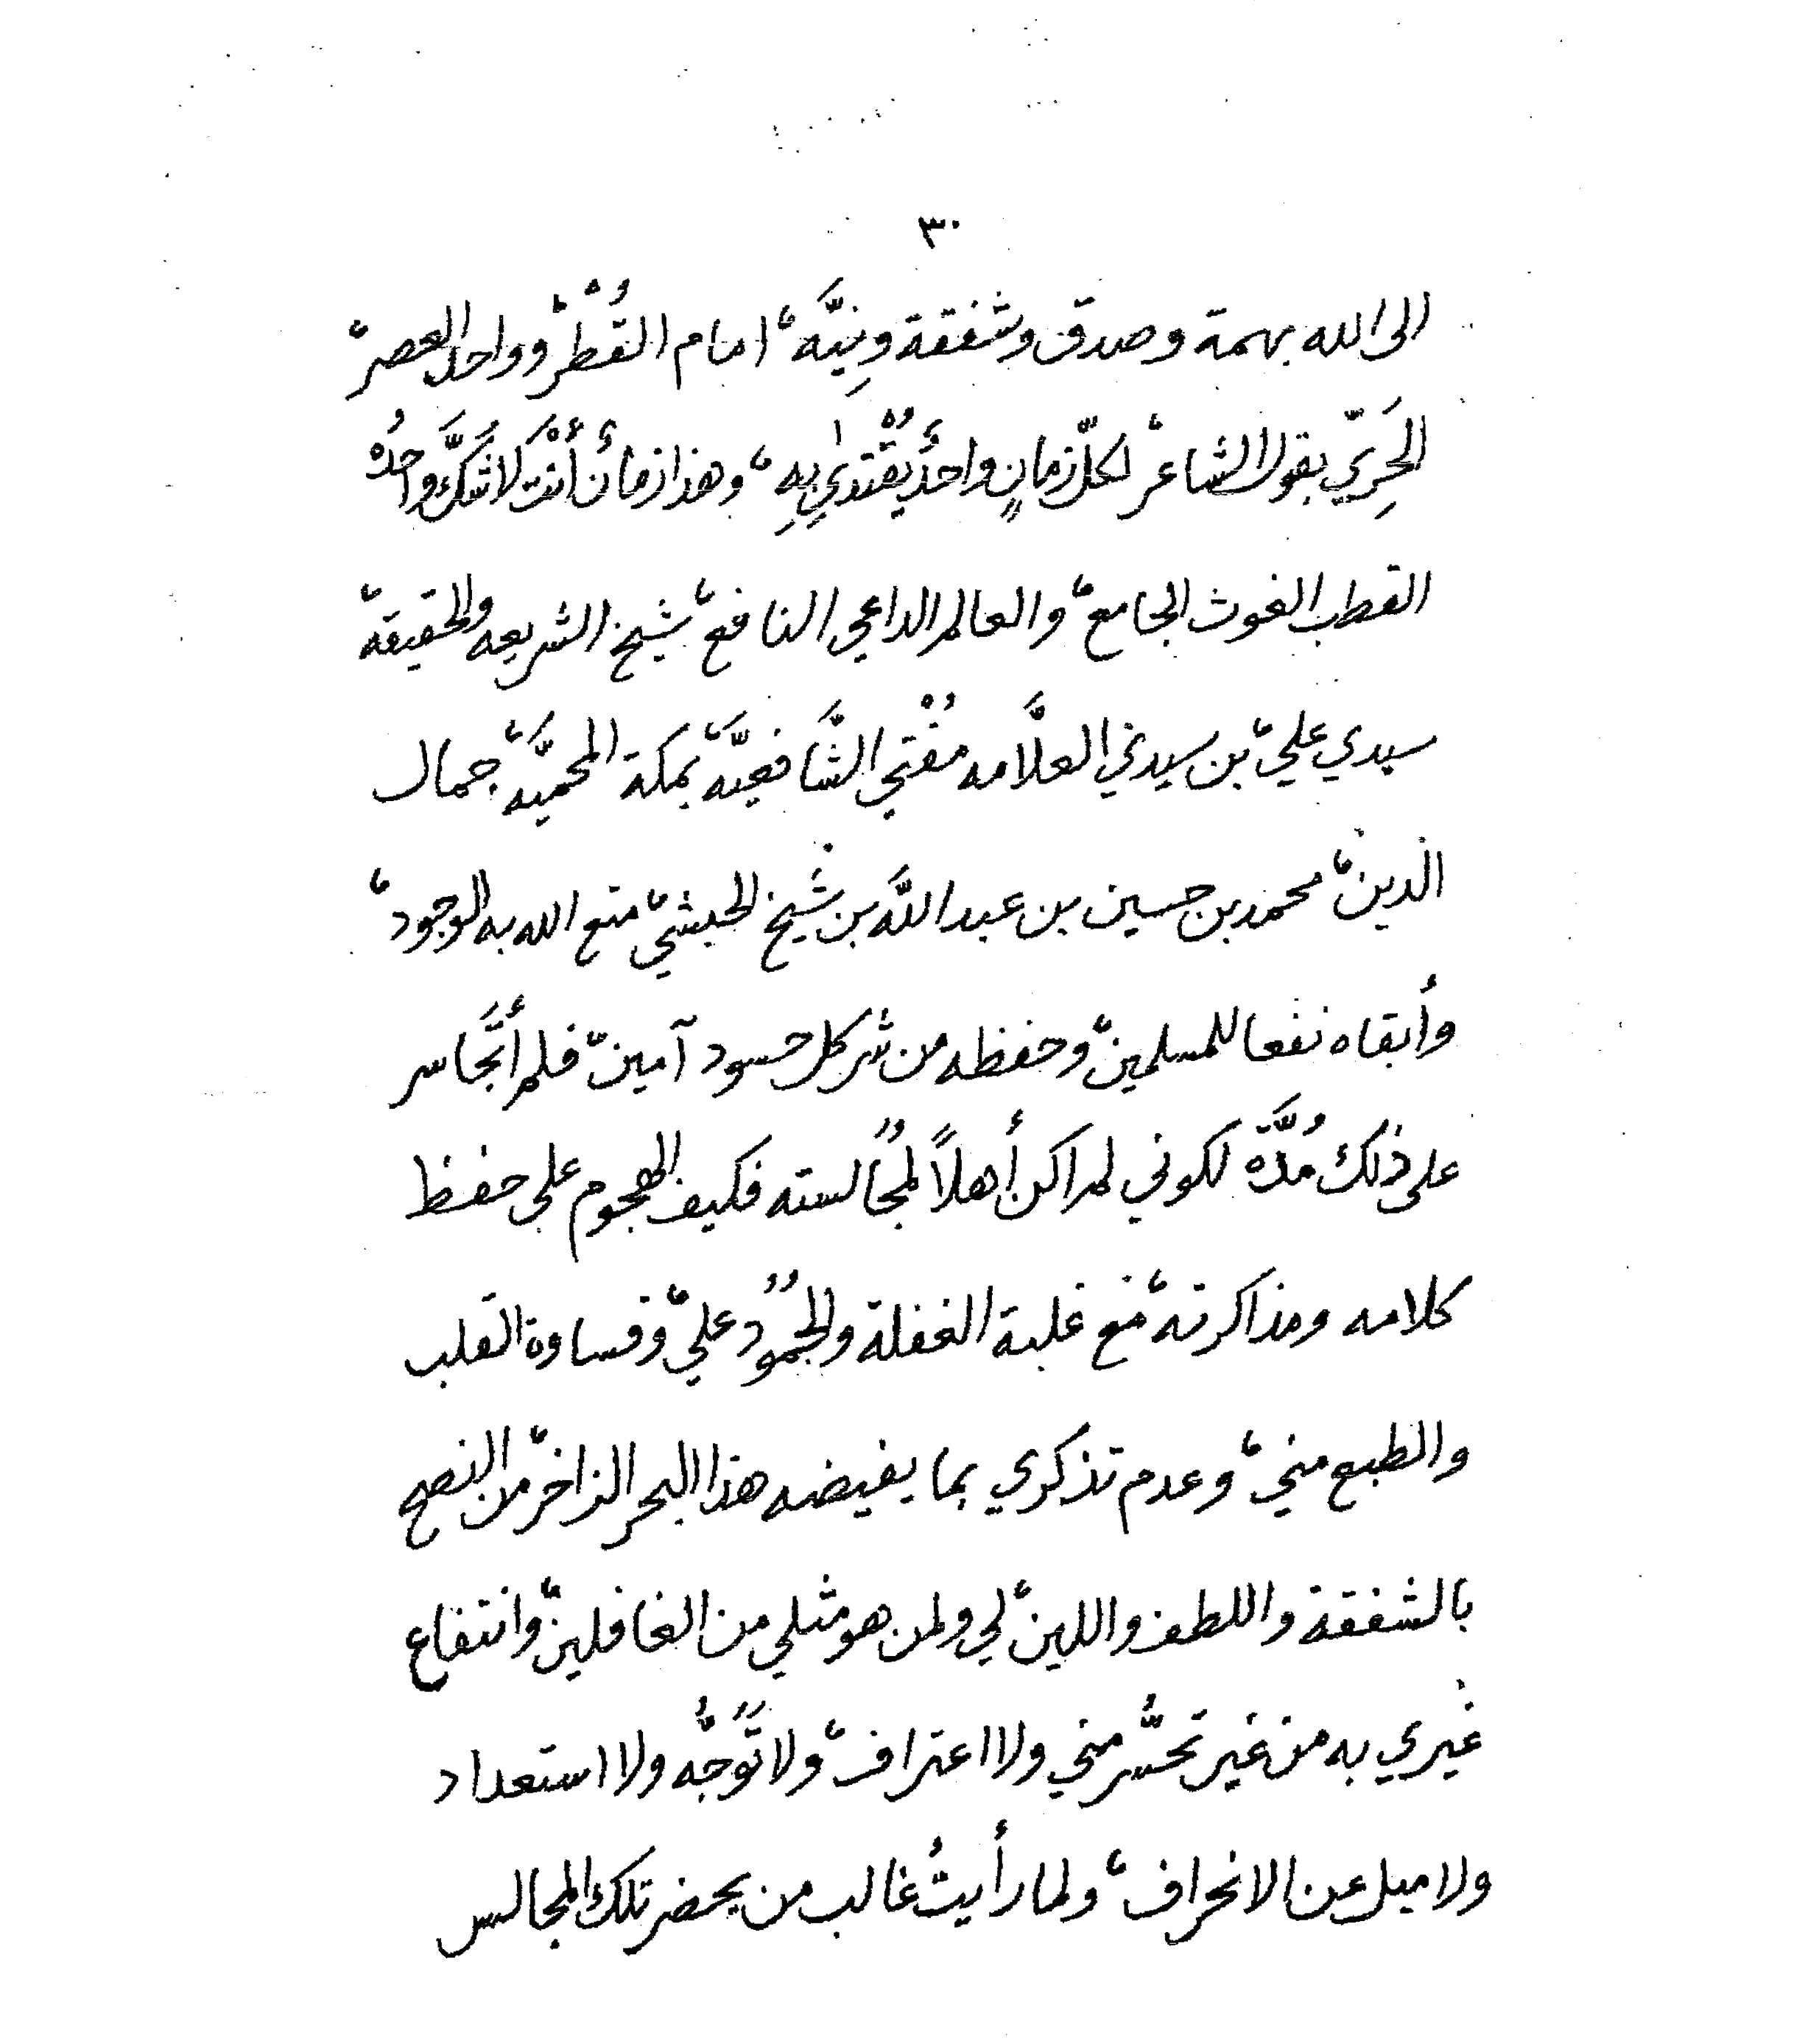 ٣٠
الى الله بهمة وصدق وشفقة ونِيَّه، امام القُطْر، وواحد العصر،
الحَرِيّ بقول الشاعر، لكلّ زمانٍ واحدٌ يُقْتدى بِهِ، وهذا زمانٌ أنْتَ لاشَكَّ واحدُه
القطب الغوث الجامع، والعالم الداعي النافع، شيخ الشريعه والحقيقه،
سيدي علي، بن سيدي العلَّامه مُفْتي الشَّافعيَّه، بمكة المحميَّه، جمال
الدين، محمد بن حسين بن عبد اللَّه بن شَيخ الحبشي، متع الله به الوجود،
وأبقاه نفعا للمسلمين، وحفظه من شر كل حسود آمين، فلم أتَجَاسر
على ذلك مُدَّة لكوني لم اكن أهلاً لمُجَالسته فكيف الهجوم على حفظ
كلامه ومذاكرته، مع غلبة الغفلة والجُمُود عليّ، وقساوة القلب
والطبع مني، وعدم تذكري بما يفيضه هذا البحر الزاخر، من النصح
بالشفقة واللطف واللين، لي ولمن هو مثلي من الغافلين، وانتفاع
غيري به من غير تحسُّر مني ولا اعتراف، ولا تَوَجُّه ولا استعداد
ولا ميل عن الانحراف، ولما رأيتُ غالب من يحضر تلك المجالس